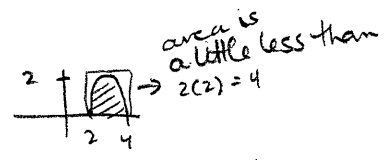 area is
a little less than
2(2) = 4
2
2 4